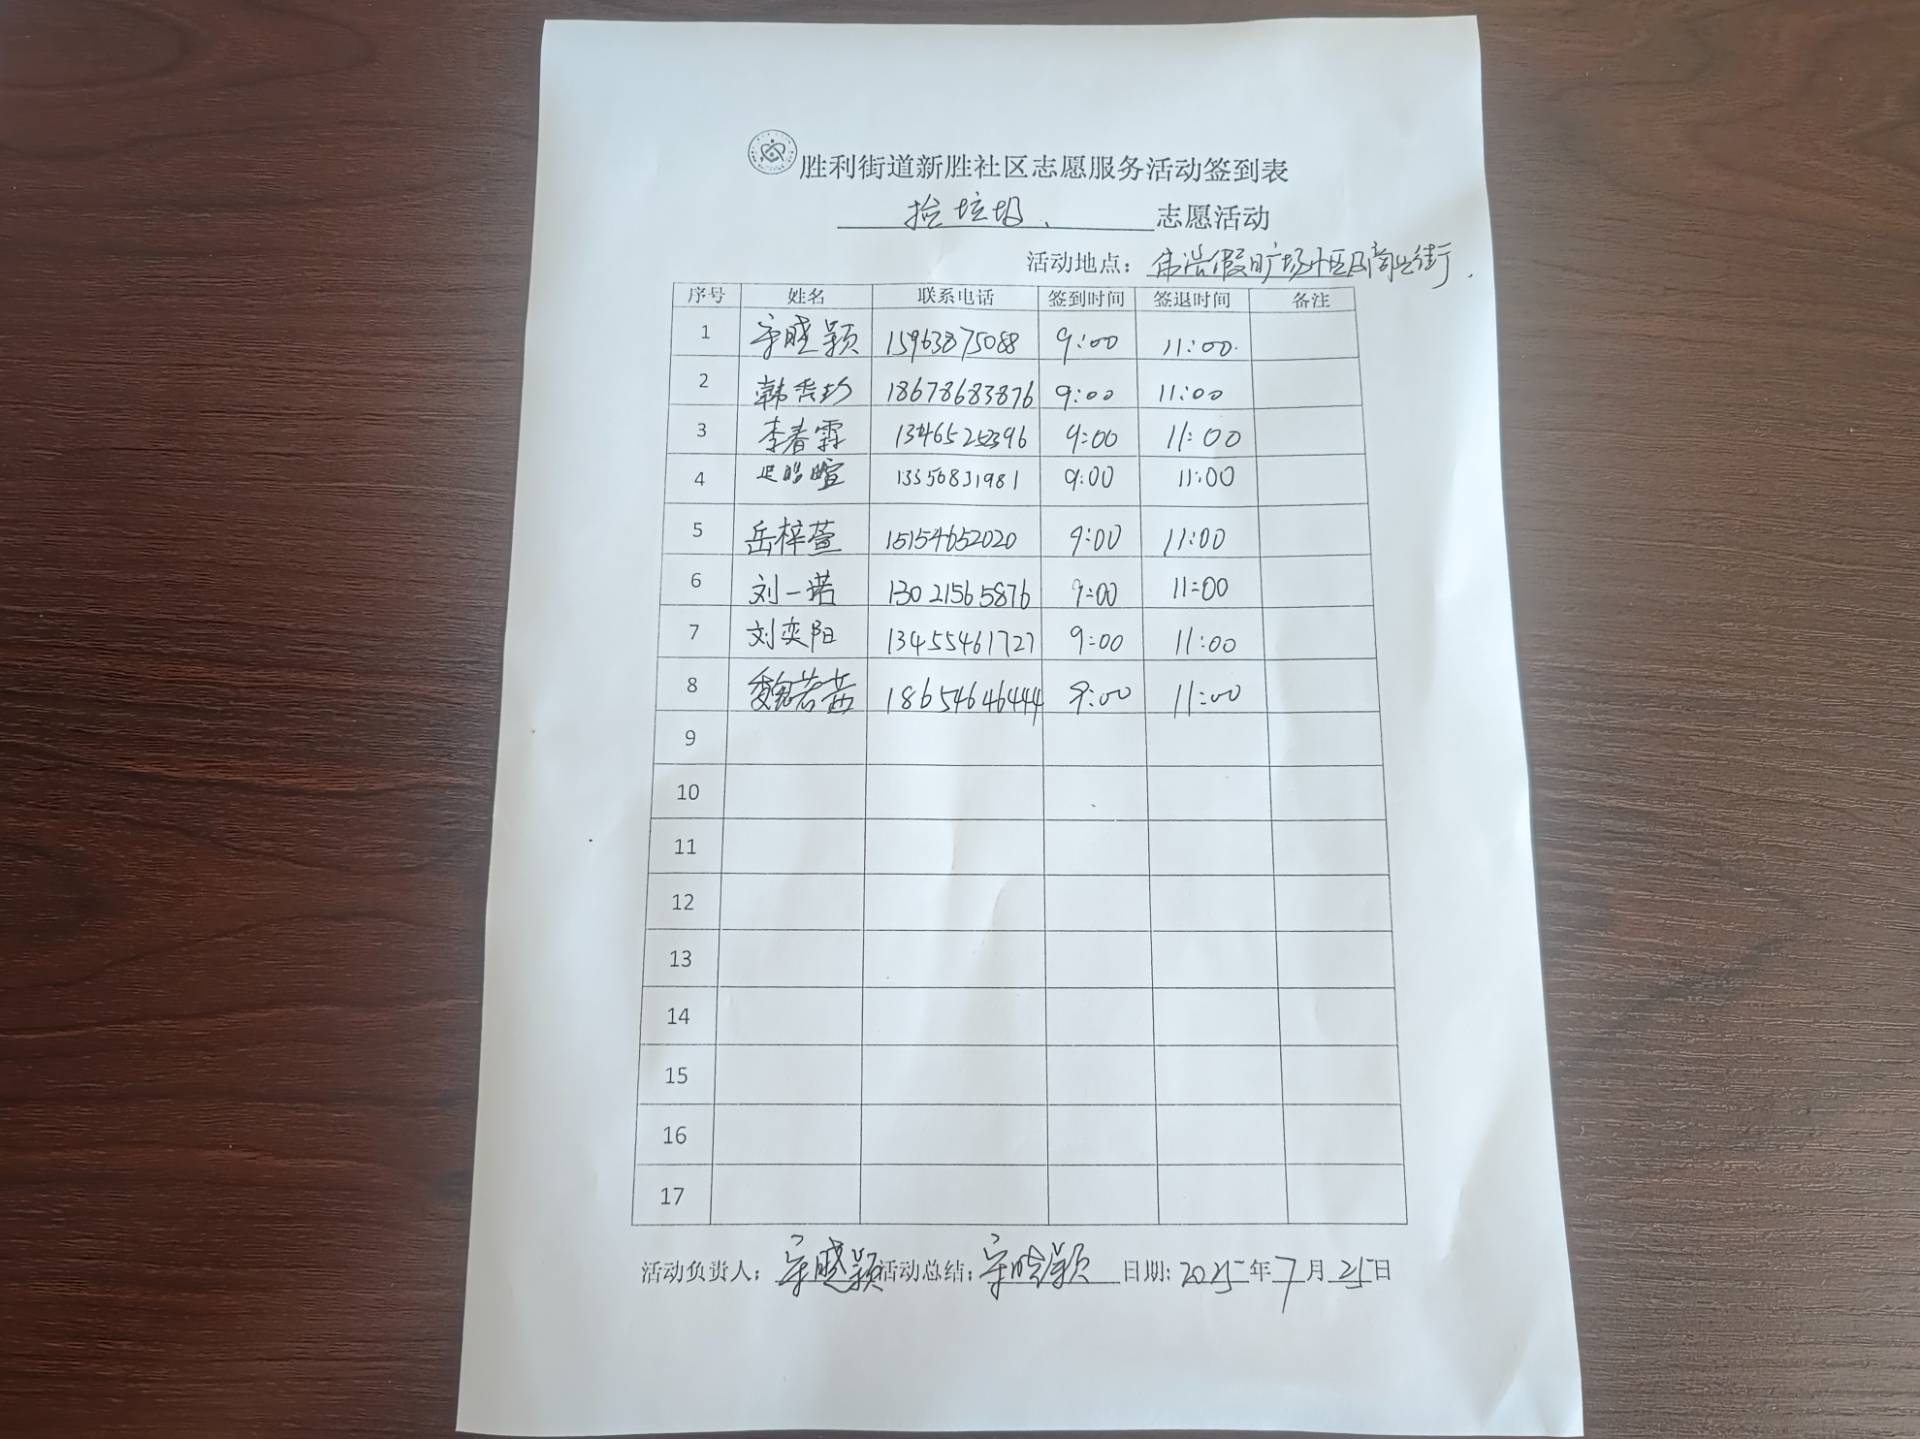 胜利街道新胜社区志愿服务活动签到表
捡垃圾、志愿活动
活动地点：假日广场小区及商业街.
序号 姓名 联系电话 签到时间 签退时间 备注
1 宋晓颖 15963875088 9:00 11:00.
2 韩秀珍 18678683876 9:00 11:00
3 李春霖 13465252396 9:00 11:00
4 13356831981 9:00 11:00
5 岳梓萱 15154652020 9:00 11:00
6 刘一诺 13021565876 9:00 11:00
7 刘奕阳 13455461727 9:00 11:00
8 魏若茜 18654646444 9:00 11:00
9
10
11
12
13
14
15
16
17
活动负责人：宋晓颖 活动总结：宋晓颖 日期：2025年7月25日